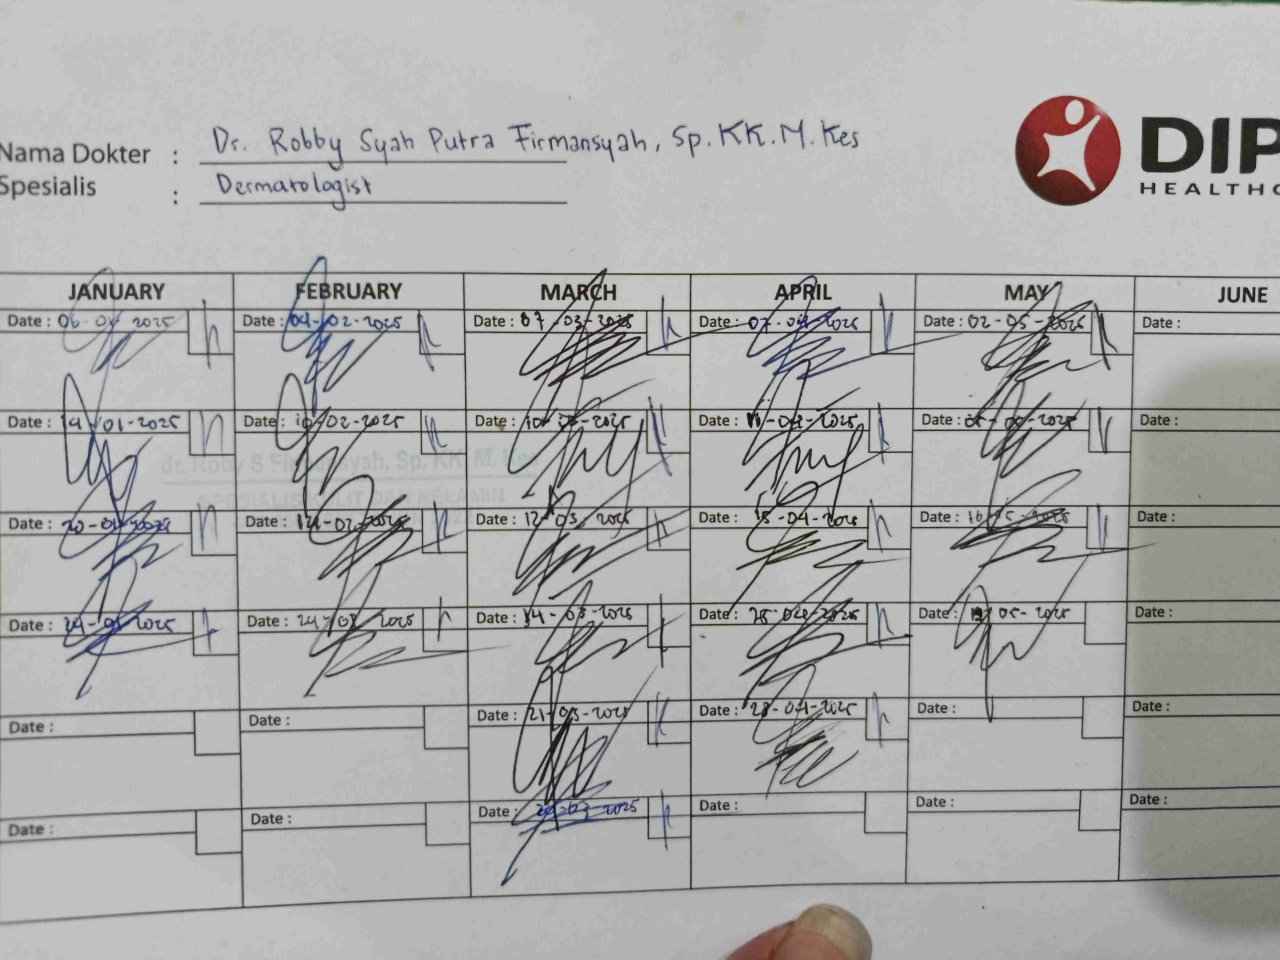 Nama Dokter : Dr. Robby Syah Putra Firmansyah, Sp.KK.M.Kes
Spesialis : Dermatologist
DIP
HEALTHC
JANUARY FEBRUARY MARCH APRIL MAY JUNE
Date : 06-01-2025 Date : 04-02-2025 Date : 07-03-2025 Date : 07-04-2025 Date : 02-05-2025 Date :
Date : 14-01-2025 Date : 10-02-2025 Date : 10-03-2025 Date : 11-04-2025 Date : -2025 Date :
Date : 20-01-2025 Date : -02-2025 Date : 12-03-2025 Date : 15-04-2025 Date : 2025 Date :
Date : 2025 Date : 24-02-2025 Date : 14-03-2025 Date : 25-04-2025 Date : 05-2025 Date :
Date : Date : Date : 21-03-2025 Date : 28-04-2025 Date : Date :
Date : Date : Date : 2025 Date : Date : Date :